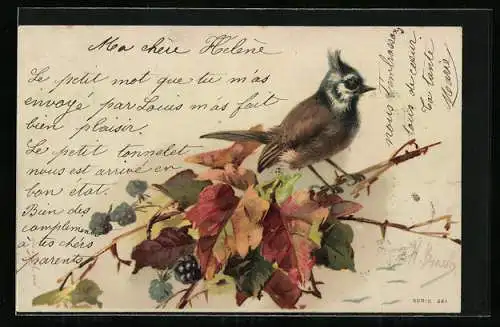 Ma chère Helène
Le petit mot que tu m'as
envoyé par Louis m'as fait
bien plaisir.
Le petit tonnelet
nous est arrivé en
bon état.
Bien des
compliments
à tes chers
parents
nous t'embrassons
tous de cœur
Ta tante
Marie
SERIE 261